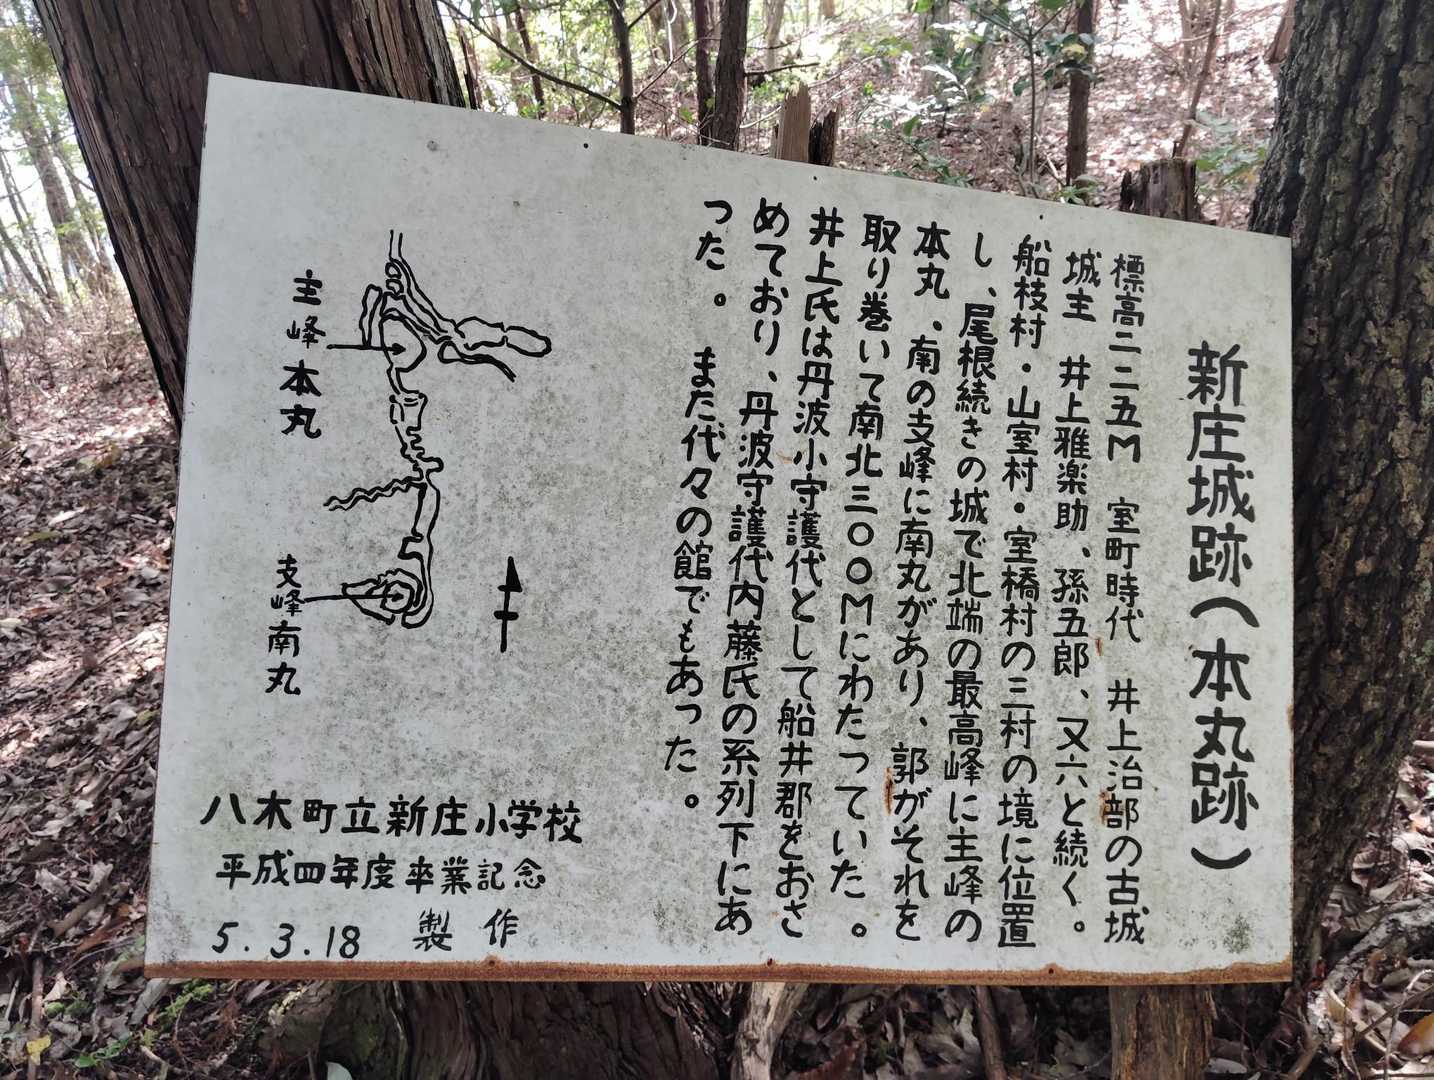 新庄城跡(本丸跡)
標高二二五M 室町時代 井上治部の古城
城主 井上雅楽助、孫五郎、又六と続く。
船枝村・山室村・室橋村の三村の境に位置
し、尾根続きの城で北端の最高峰に主峰の
本丸、南の支峰に南丸があり、郭がそれを
取り巻いて南北三〇〇Mにわたっていた。
井上氏は丹波小守護代として船井郡をおさ
めており、丹波守護代内藤氏の系列下にあ
った。 また代々の館でもあった。
主峰本丸
支峰南丸
八木町立新庄小学校
平成四年度卒業記念
5.3.18 製作